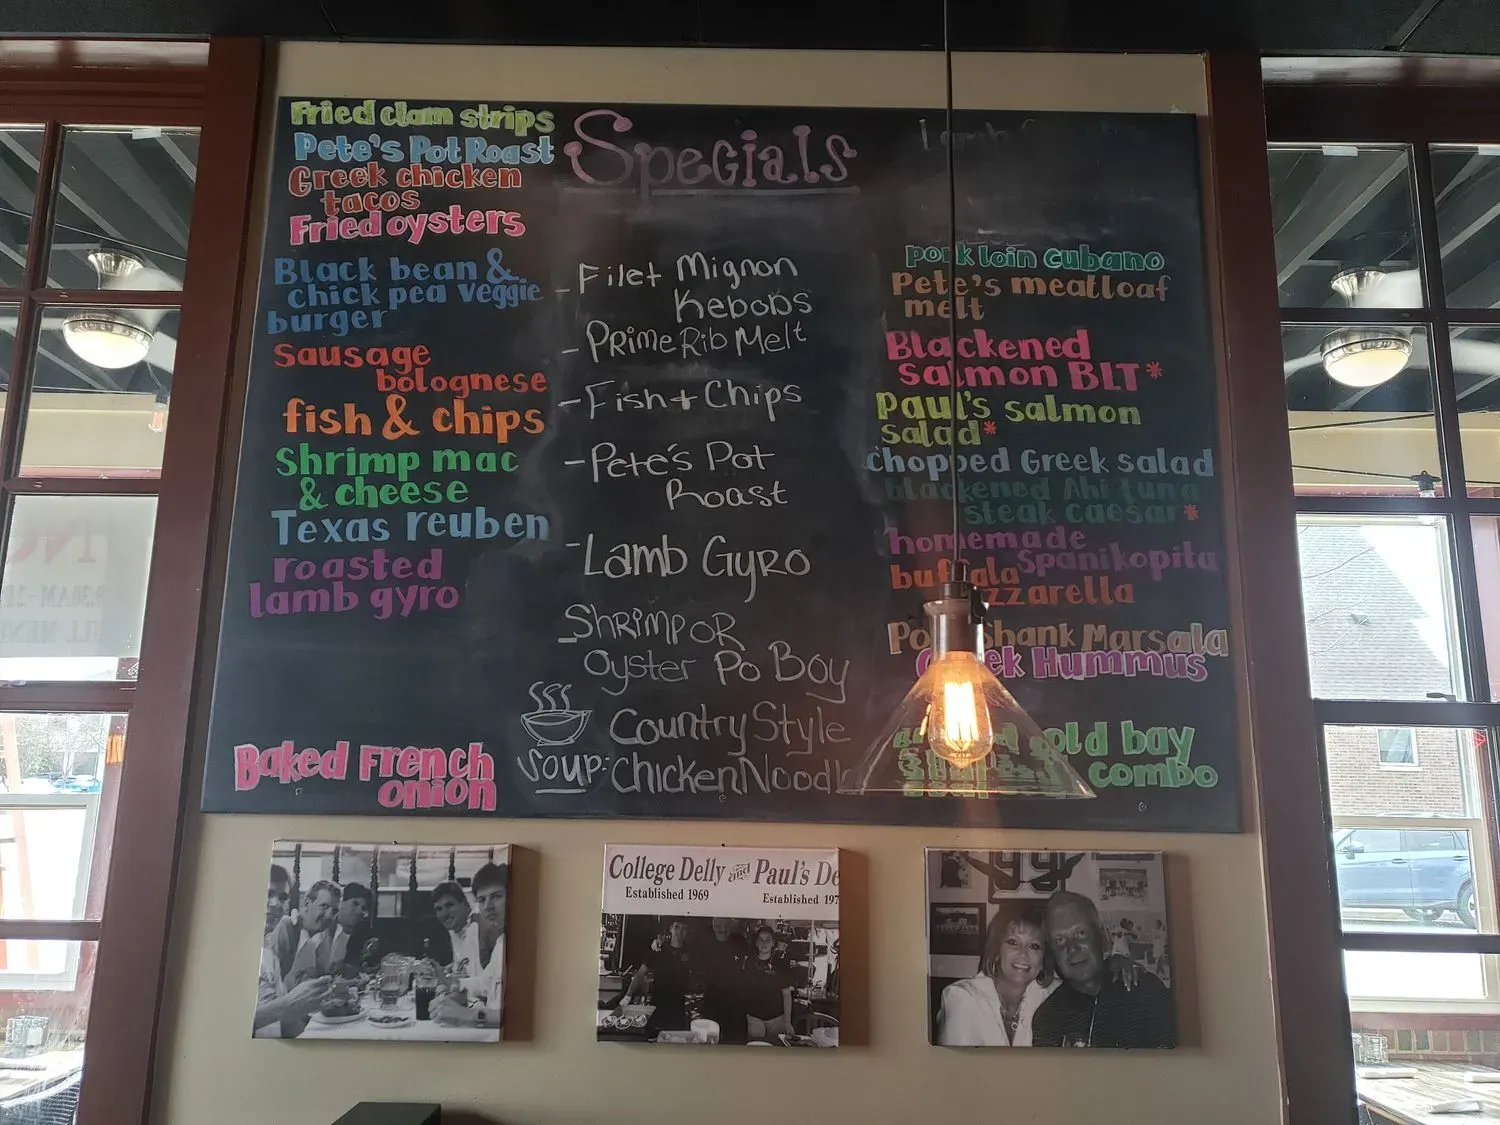 Fried clam strips
Pete's Pot Roast
Greek chicken
tacos
Fried oysters
Black bean &
chick pea veggie
burger
Sausage
bolognese
fish & chips
Shrimp mac
& cheese
Texas reuben
roasted
lamb gyro
Baked French
onion
Specials
- Filet Mignon
Kebobs
- Prime Rib Melt
- Fish + Chips
- Pete's Pot
Roast
- Lamb Gyro
- Shrimp or
Oyster Po Boy
Country Style
Soup: Chicken Noodle
Lamb
pork loin cubano
Pete's meatloaf
melt
Blackened
salmon BLT*
Paul's salmon
salad*
chopped Greek salad
blackened Ahi tuna
steak caesar*
homemade
Spanikopita
buffala
mozzarella
Pork shank Marsala
Greek Hummus
old bay
combo
College Delly and Paul's De
Established 1969
Established 197